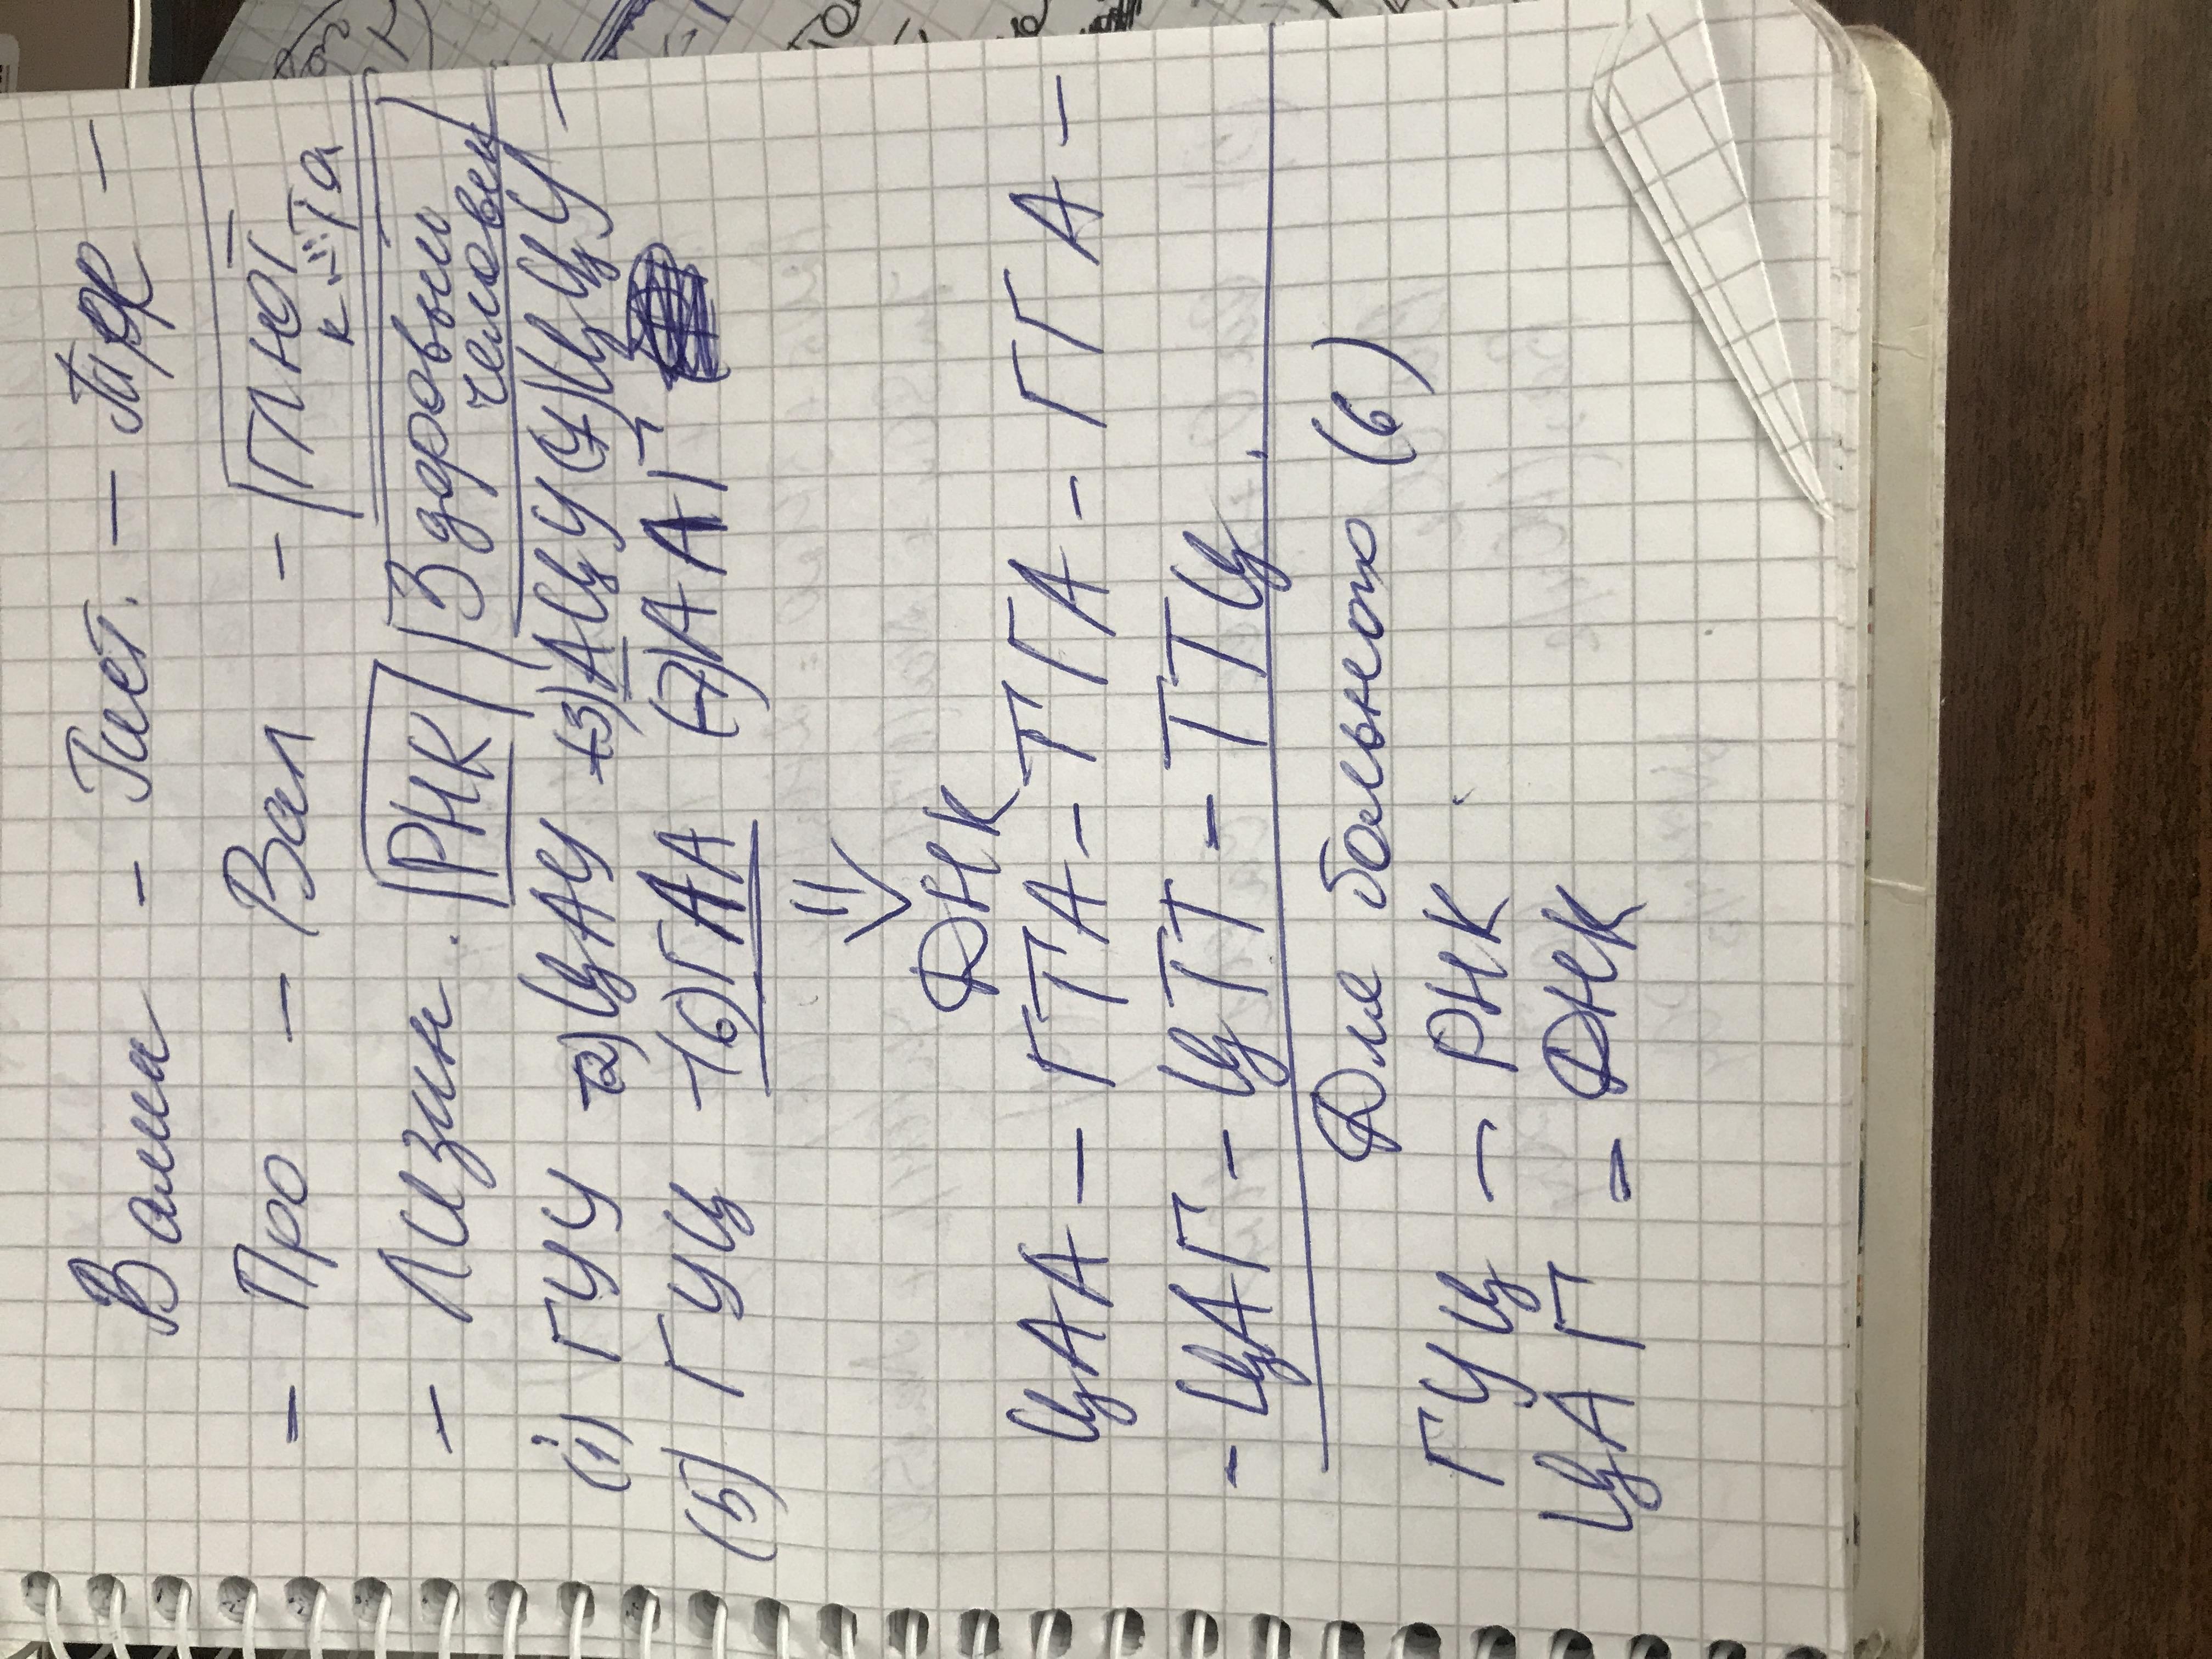 Валин - Гист. - Тре -
- Про - Вал - Глют к-та
- Лизин. РНК Здоровый человек
(1) ГУУ (2) ЦАУ (3) АЦУ (4) ЦЦУ -
(5) ГУЦ - (6) ГАА (7) ААГ
ДНК
ЦАА - ГТА - ТГА - ГГА -
- ЦАГ - ЦТТ - ТТЦ.
Для больного (6)
ГУЦ - РНК
ЦАГ - ДНК